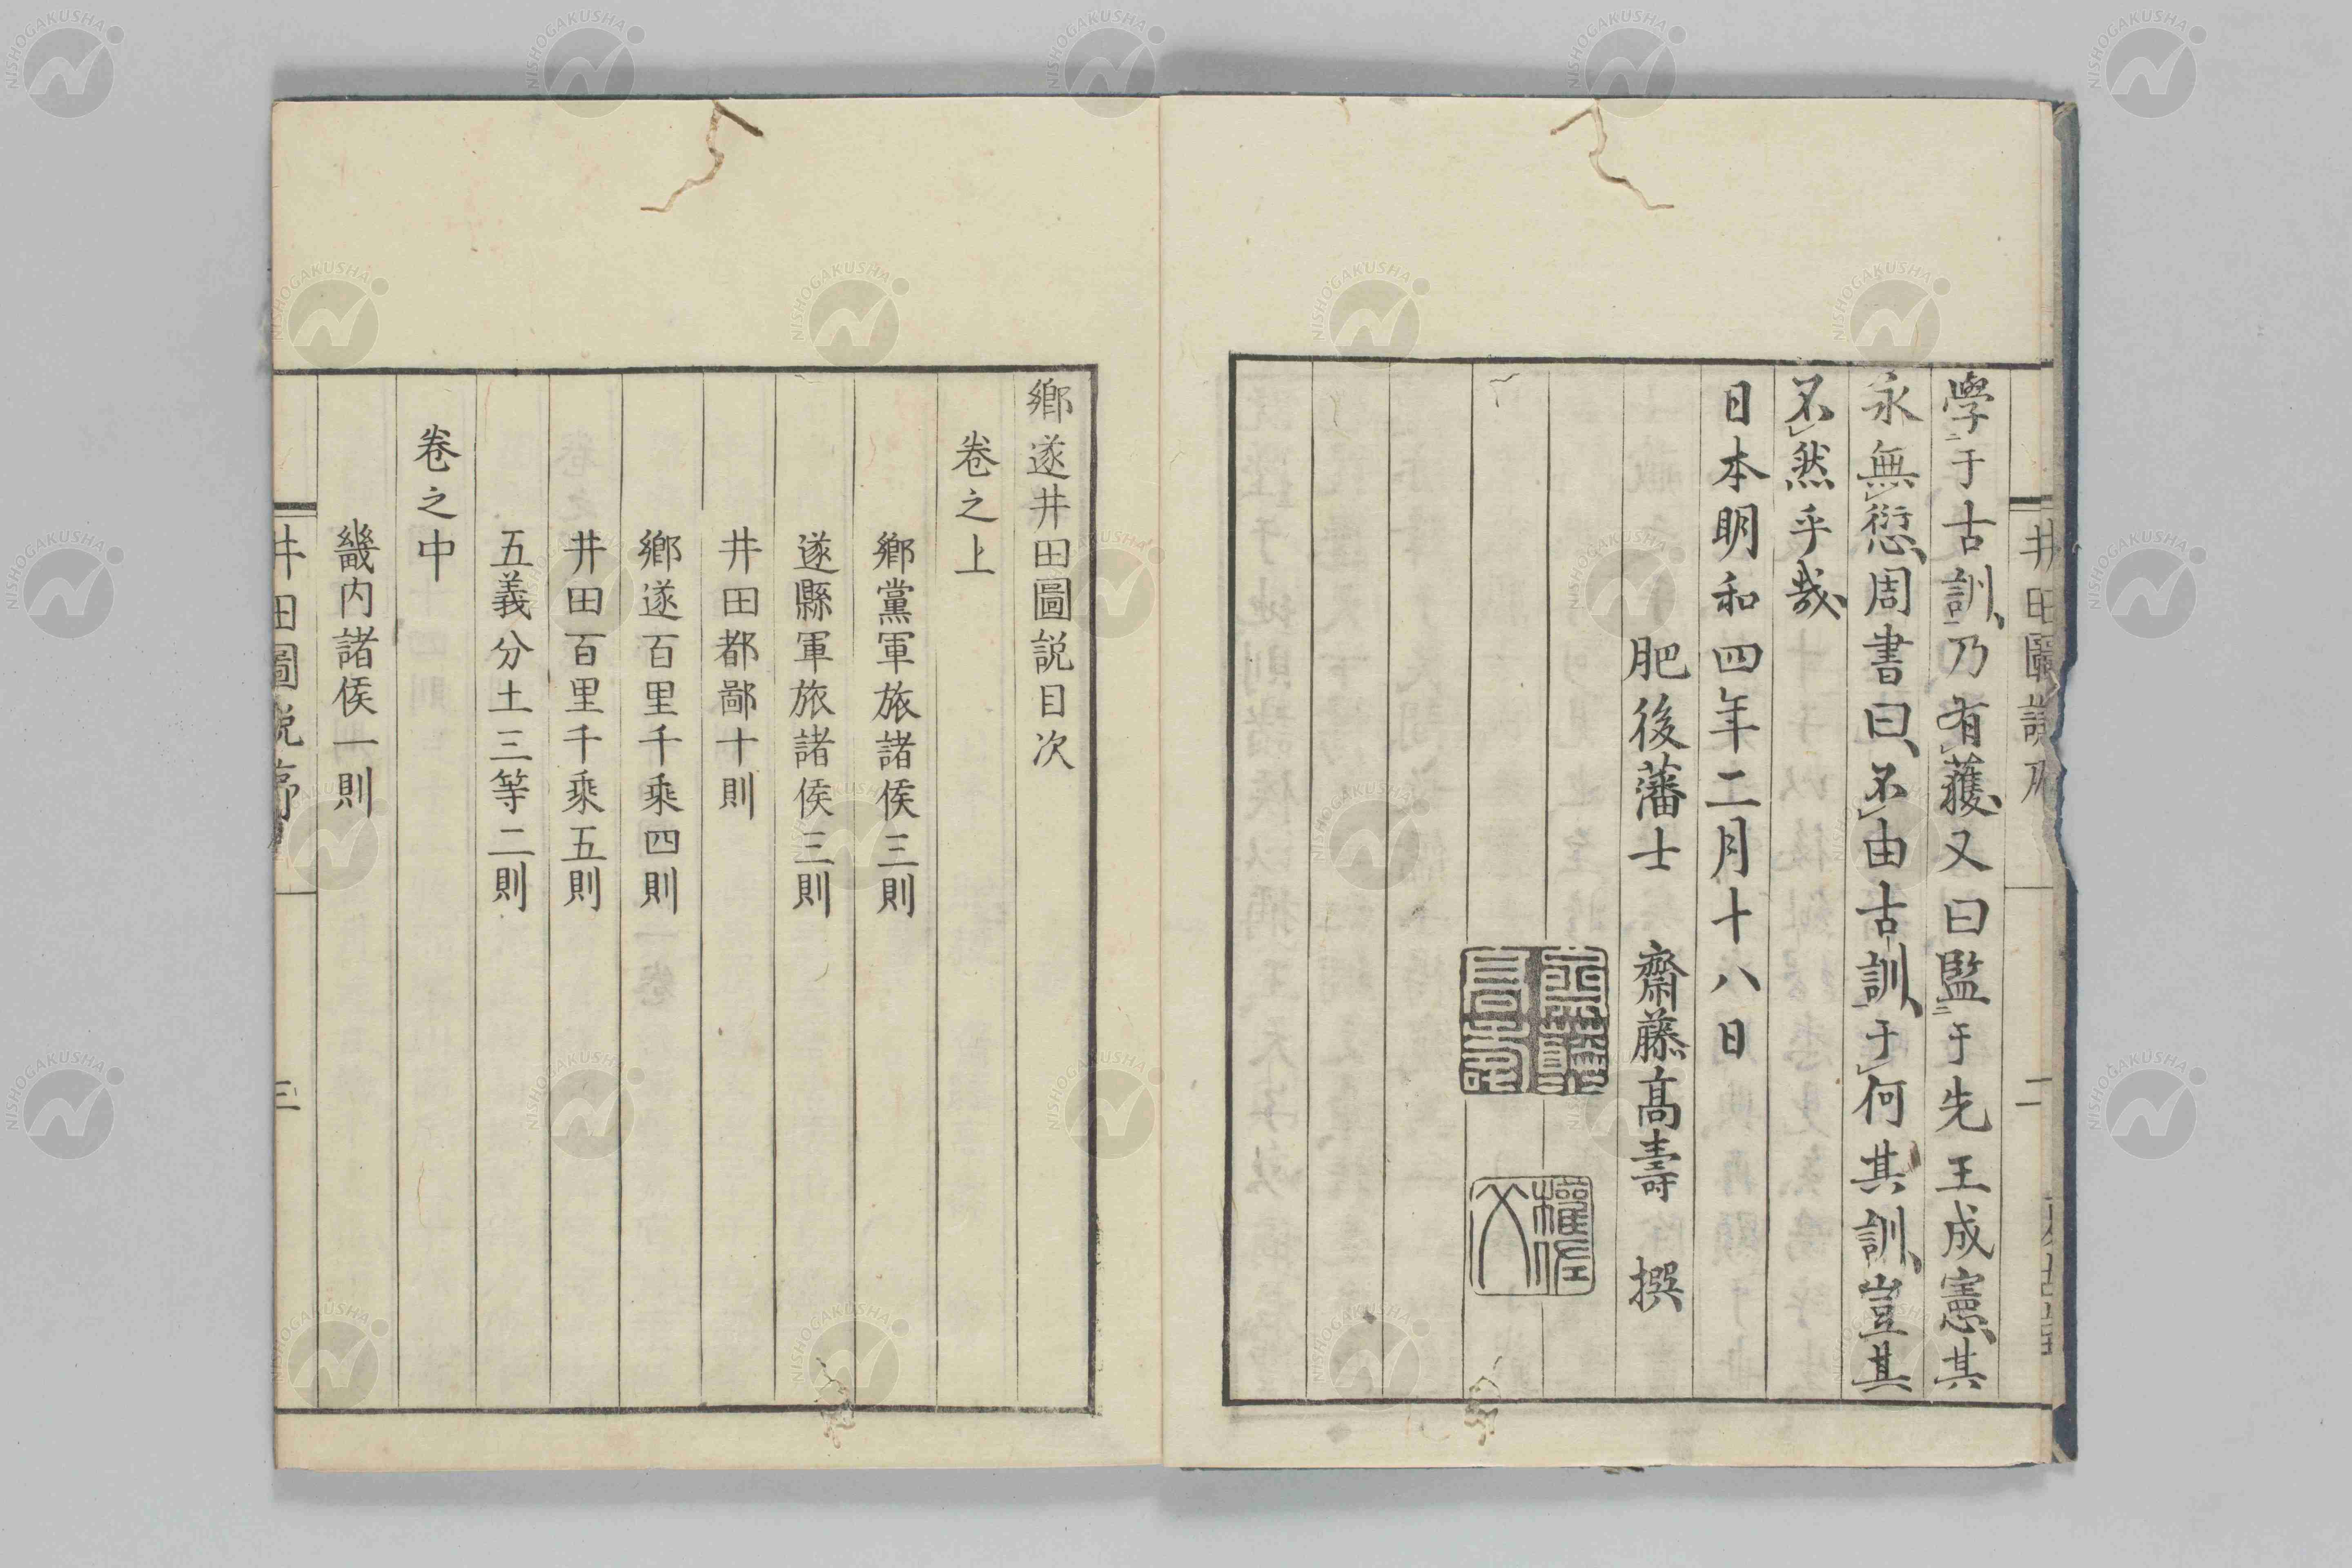 學于古訓、乃有獲、又曰監于先王成憲、其
永無愆、周書曰、不由古訓、于何其訓、豈其
不然乎哉、
日本明和四年二月十八日
肥後藩士 齋藤高壽 撰
權佐
鄉遂井田圖説目次
卷之上
鄉黨軍旅諸侯三則
遂縣軍旅諸侯三則
井田都鄙十則
鄉遂百里千乘四則
井田百里千乘五則
五義分土三等二則
卷之中
畿内諸侯一則
井田圖説序
三
NISHOGAKUSHA